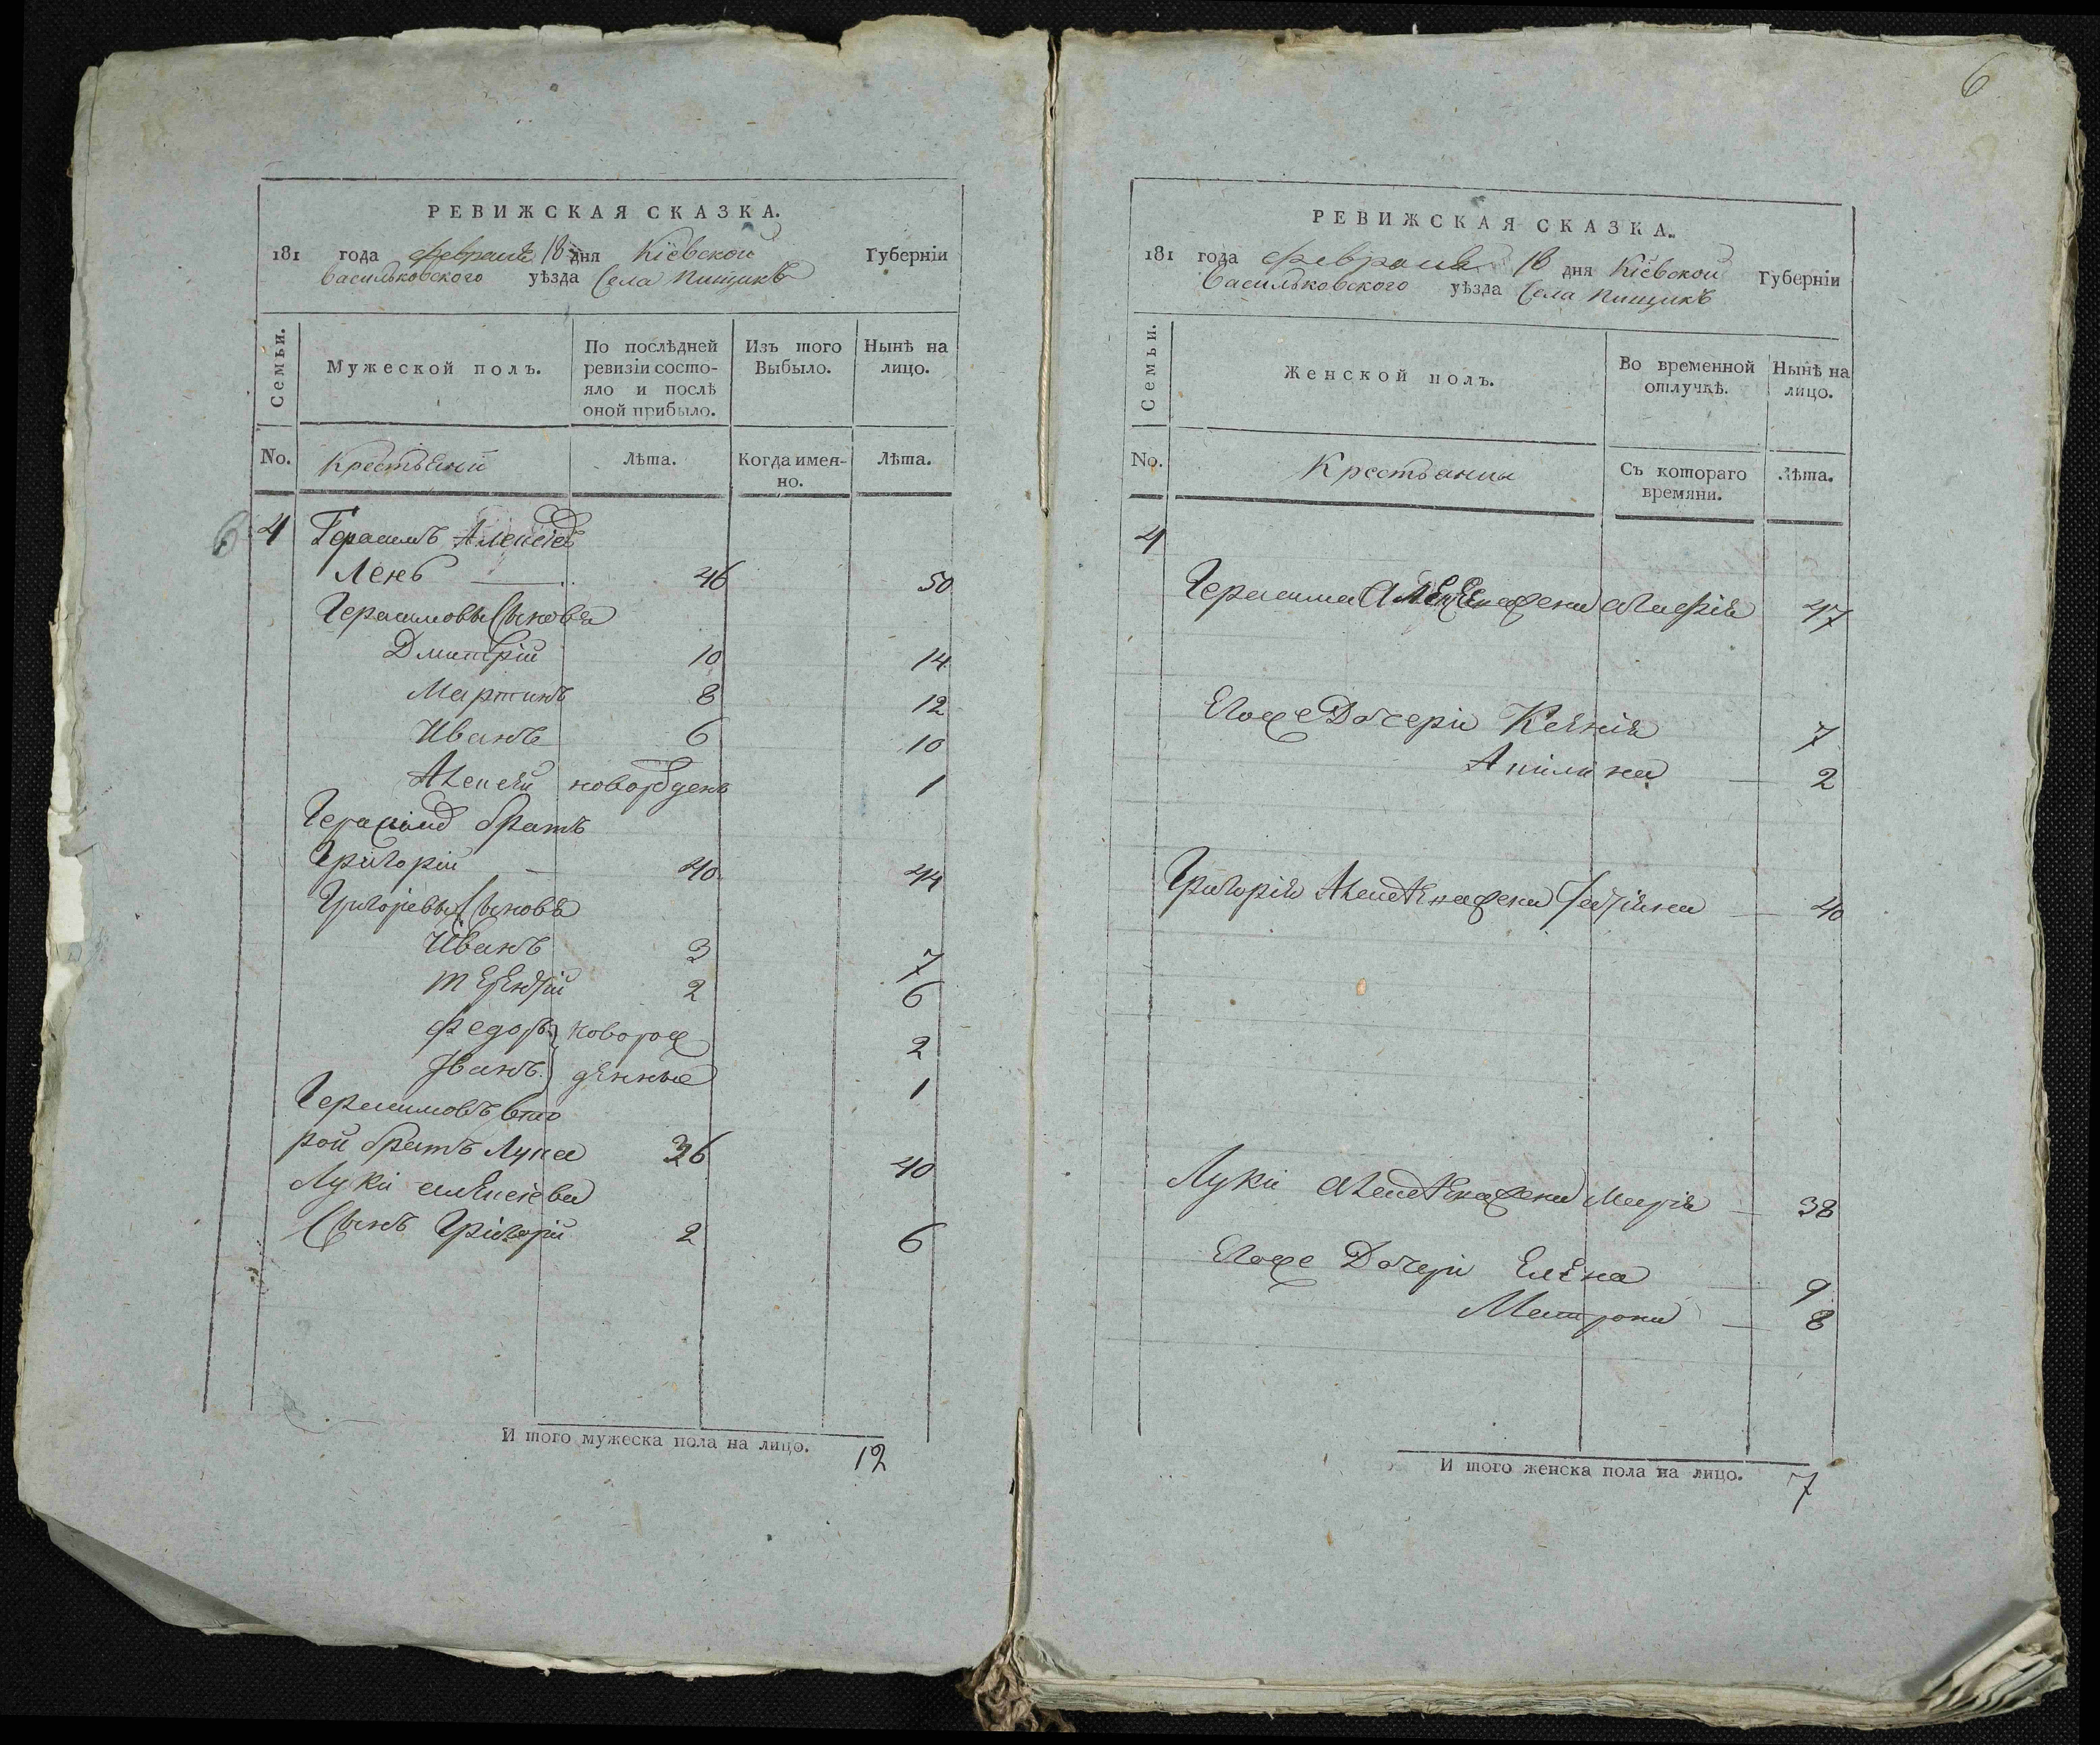 РЕВИЖСКАЯ СКАЗКА.
181 года февраля 18 дня Кіевской Губерніи
Васильковского уѣзда Села Пищикъ
Семьи.
Мужеской полъ.
По послѣдней ревизіи состояло и послѣ оной прибыло.
Изъ того Выбыло.
Нынѣ на лицо.
No.
Крестьяній
Лѣта.
Когда именно.
Лѣта.
6 4 Герасимъ Алексіевъ
Ленъ 46 50
Герасимовы Сыновя
Дмитрій 10 14
Мартинъ 8 12
Иванъ 6 10
Алексѣй новорожденъ 1
Герасимовъ братъ
Григорій 40 44
Григоріевы Сыновя
Иванъ 3 7
Терентій 2 6
Федоръ новорож 2
Іванъ денные 1
Герасимовъ вто
рой братъ Лука 36 40
Луки алексіева
Сынъ Григорій 2 6
И того мужеска пола на лицо. 12
6
РЕВИЖСКАЯ СКАЗКА.
181 года февраля 18 дня Кіевской Губерніи
Васильковского уѣзда Села Пищикъ
Семьи.
Женской полъ.
Во временной отлучкѣ.
Нынѣ на лицо.
No.
Крестьянъы
Съ котораго времяни.
Лѣта.
4
Герасима жена 47
Егоже Дочери Ксенія 7
Акилина 2
Григорія жена 40
Луки жена Марія 38
Егоже Дочери Елена 9
Матрона 8
И того женска пола на лицо. 7